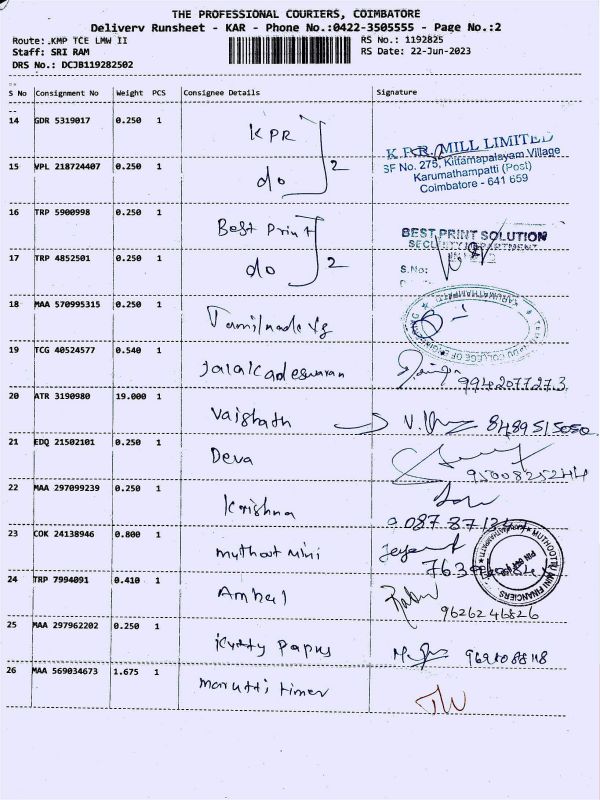 THE PROFESSIONAL COURIERS, COIMBATORE
Delivery Runsheet - KAR - Phone No.:0422-3505555 - Page No.:2
Route: KMP TCE LMW II RS No.: 1192825
Staff: SRI RAM RS Date: 22-Jun-2023
DRS No.: DCJB119282502
S No Consignment No Weight PCS Consignee Details Signature
14 GDR 5319017 0.250 1 KPR
K.P.R. MILL LIMITED
SF No. 275, Kittamapalayam Village
Karumathampatti (Post)
Coimbatore - 641 659
15 VPL 218724407 0.250 1 do 2
16 TRP 5900998 0.250 1 Best Print
BEST PRINT SOLUTION
SECURITY DEPARTMENT
17 TRP 4852501 0.250 1 do 2
S.No:
18 MAA 570995315 0.250 1 Tamilnadu
19 TCG 40524577 0.540 1 9942077273
20 ATR 3190980 19.000 1 8489515050
21 EDQ 21502101 0.250 1 Deva 9500825244
22 MAA 297099239 0.250 1 Krishna
23 COK 24138946 0.800 1 muthoot mini
MUTHOOTTU MINI FINANCIERS
24 TRP 7994091 0.410 1 9626246826
25 MAA 297962202 0.250 1 Kutty Papus
26 MAA 569034673 1.675 1 maruti timer